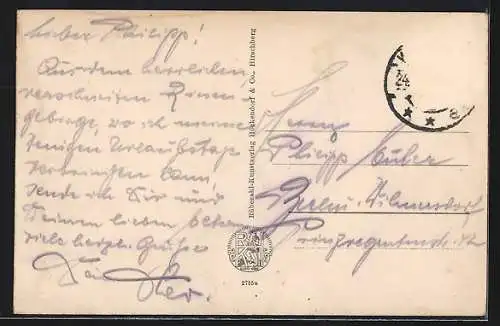 Lieber Philipp!
Aus dem herrlichen
verschneiten Riesen
gebirge, wo ich meine
wenigen Urlaubstage
verbringen kann,
sende ich Dir und
Deinen lieben Eltern
viele herzl. Grüße
Dein
Rübezahl-Kunstverlag Höckendorf & Co., Hirschberg
2785a
Herrn
Philipp Huber
Berlin-Wilmersdorf